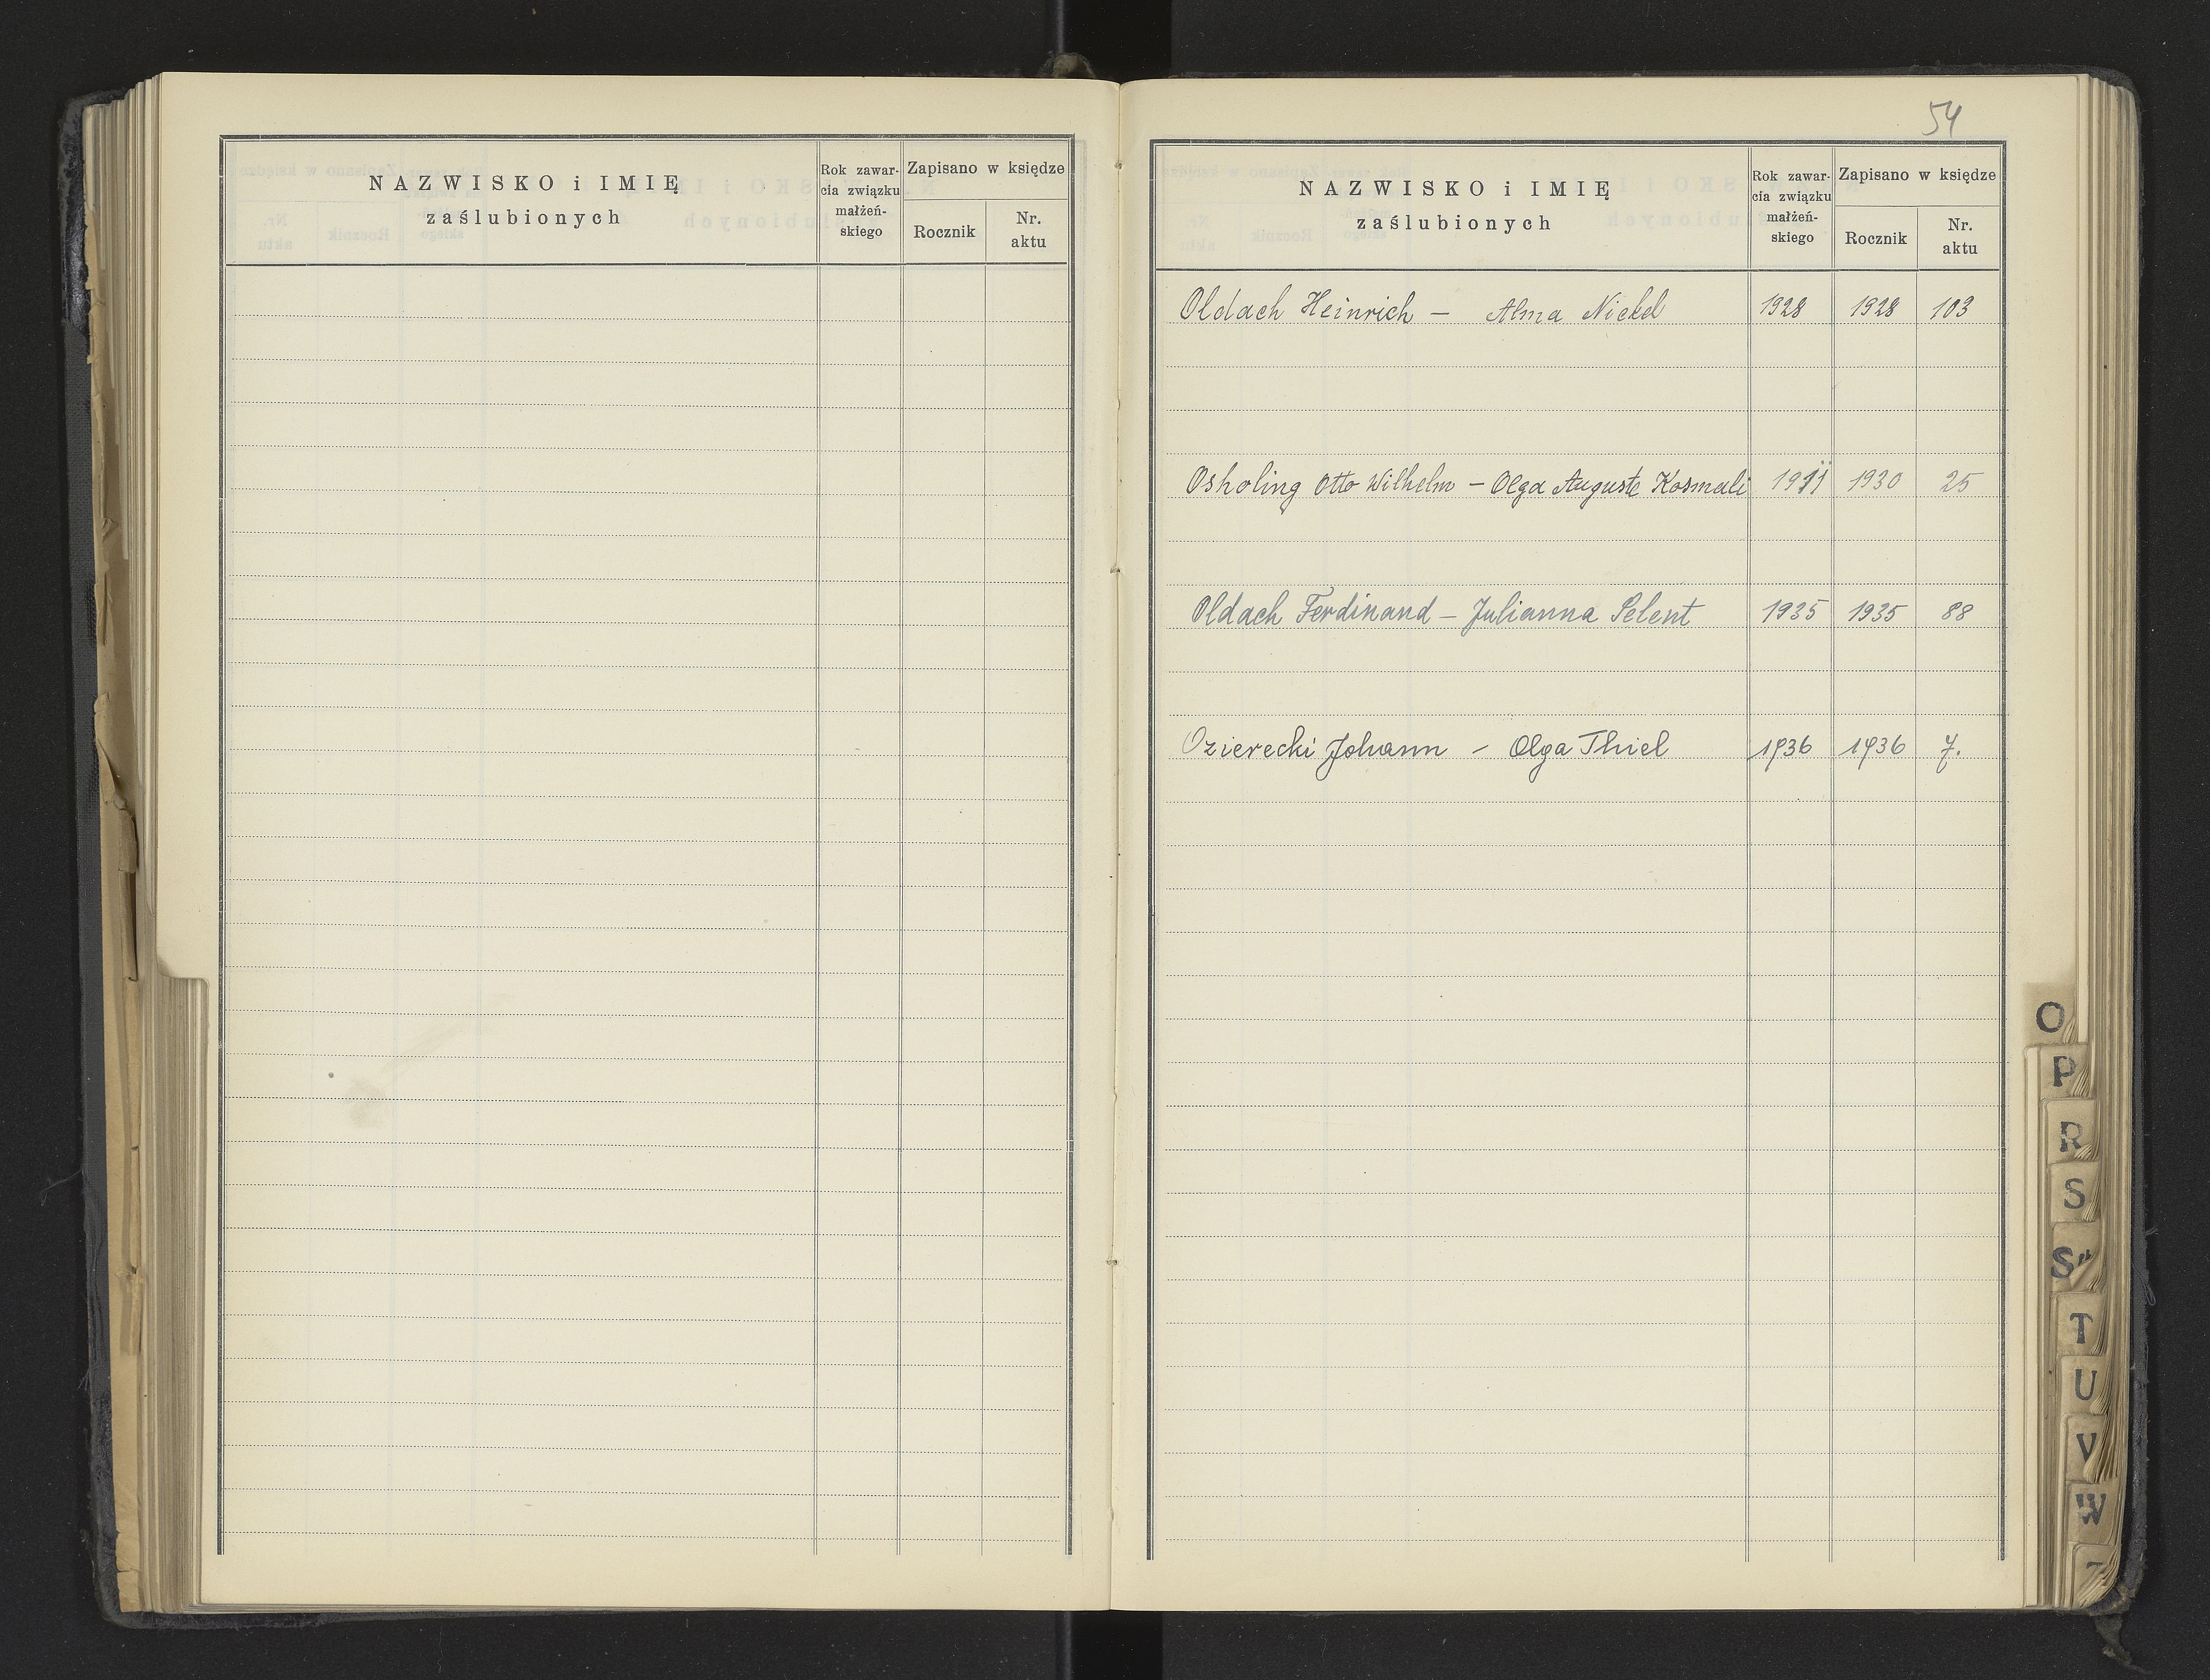 NAZWISKO i IMIĘ
zaślubionych
Rok zawar-
cia związku
małżeń-
skiego
Zapisano w księdze
Rocznik
Nr.
aktu
54
NAZWISKO i IMIĘ
zaślubionych
Rok zawar-
cia związku
małżeń-
skiego
Zapisano w księdze
Rocznik
Nr.
aktu
Oldach Heinrich — Alma Nickel 1928 1928 103
Osholing Otto Wilhelm — Olga Auguste Kosmali 1930 25
Oldach Ferdinand — Julianna Selent 1935 1935 88
Ozierecki Johann — Olga Thiel 1936 1936 7.
O
P
R
S
T
U
V
W